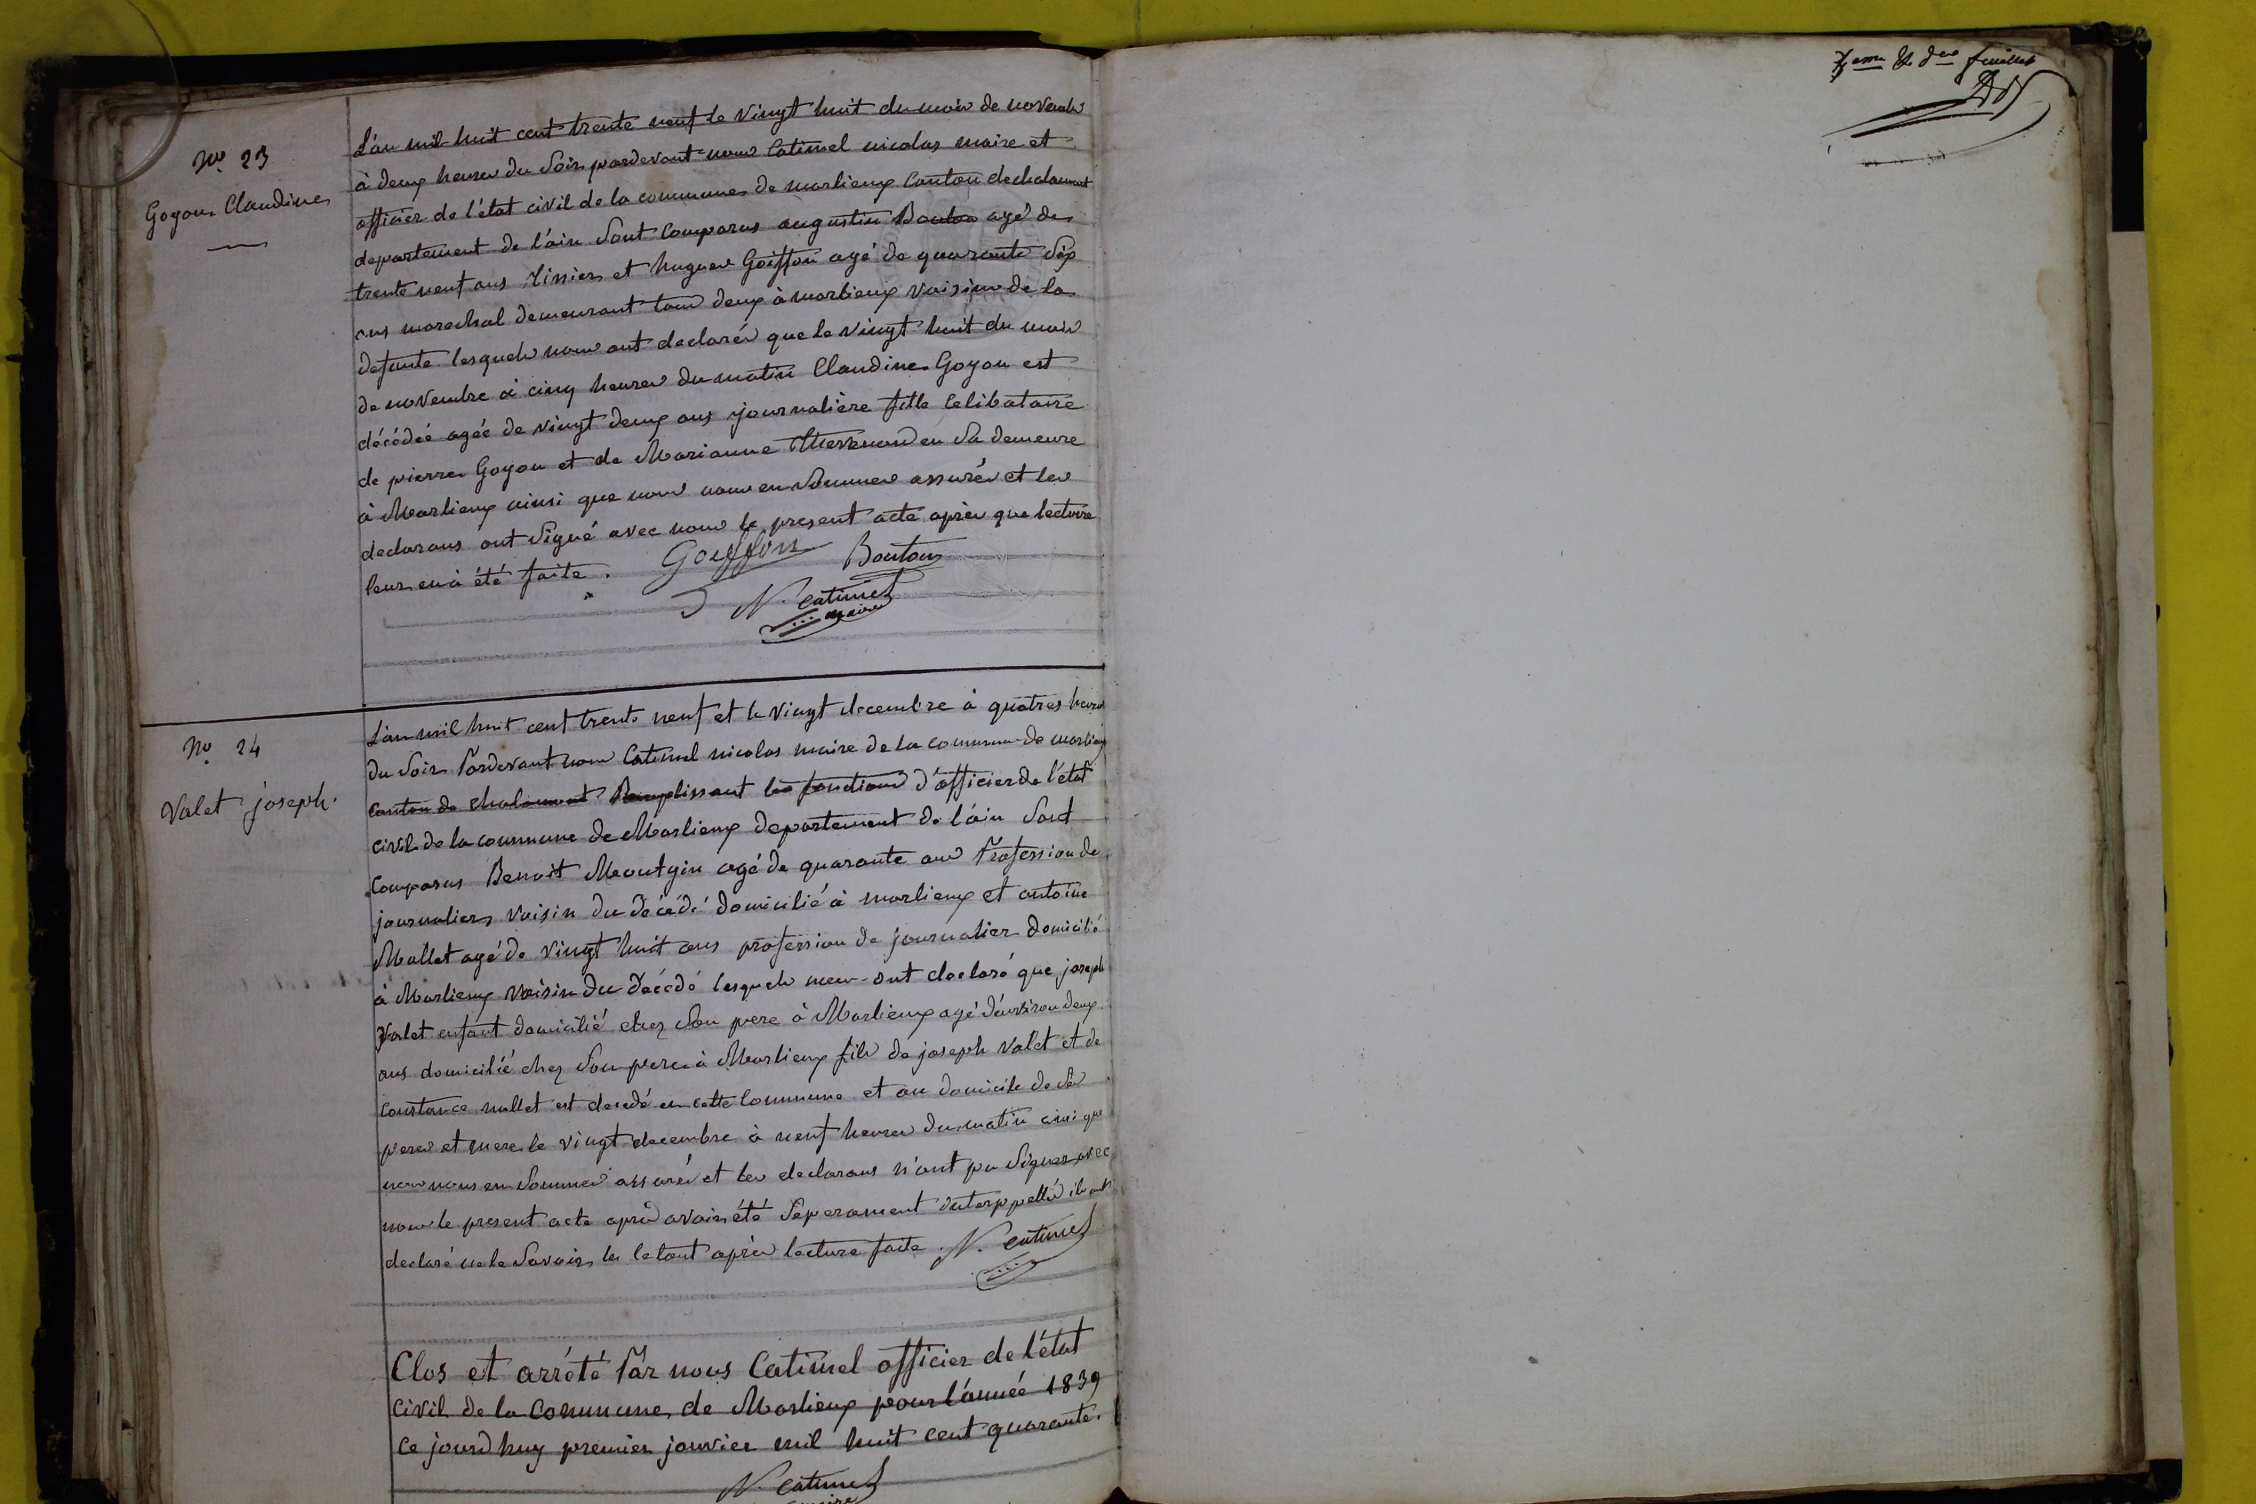 N.º 23
Goyon Claudine
L'an mil huit cent trente neuf le vingt huit du mois de novembre
à deux heures du soir pardevant nous Catimel nicolas maire et
officier de l'état civil de la commune de marlieux Canton de chalamont
departement de l'ain sont comparus augustin Bouton agé de
trente neuf ans Tissier et hugues Goiffon agé de quarante six
ans marechal demeurant tous deux à marlieux voisins de la
defunte lesquels nous ont declarés que le vingt huit du mois
de novembre à cinq heures du matin Claudine Goyon est
décédée agée de vingt deux ans journalière fille Celibataire
de pierre Goyon et de Marianne en sa demeure
à Marlieux ainsi que nous nous en sommes assurés et les
declarans ont signé avec nous le present acte après que lecture
leur en à été faite. Goiffon Bouton
N. Catimel
maire
N.º 24
Valet joseph.
L'an mil huit cent trente neuf et le vingt decembre à quatres heures
du soir Pardevant nous Catimel nicolas maire de la commune de marlieux
canton de chalamont Remplissant les fonctions d'officier de l'état
civil de la commune de Marlieux departement de l'ain Sont
Comparus Benoit Montgin agé de quarante ans Profession de
journalier voisin du décédé domicilié à marlieux et antoine
Mallet agé de vingt huit ans profession de journalier domicilié
à Marlieux voisin du décédé lesquels nous ont declaré que joseph
Valet enfant domicilié chez son pere à Marlieux agé d'environ deux
ans domicilié chez son pere à Marlieux fils de joseph Valet et de
constance mallet est decedé en cette Commune et au domicile de ses
peres et mere le vingt decembre à neuf heures du matin ainsi que
nous nous en sommes assurés et les declarans n'ont pu signer avec
nous le present acte après avoir été separament interppellés ils ont
declaré ne le savoir, le tout après lecture faite. N. Catimel
Clos et arrété Par nous Catimel officier de l'état
Civil de la Commune de Marlieux pour l'année 1839
Ce jourd'huy premier janvier mil huit cent quarante.
N. Catimel
maire
7eme & der feuillet